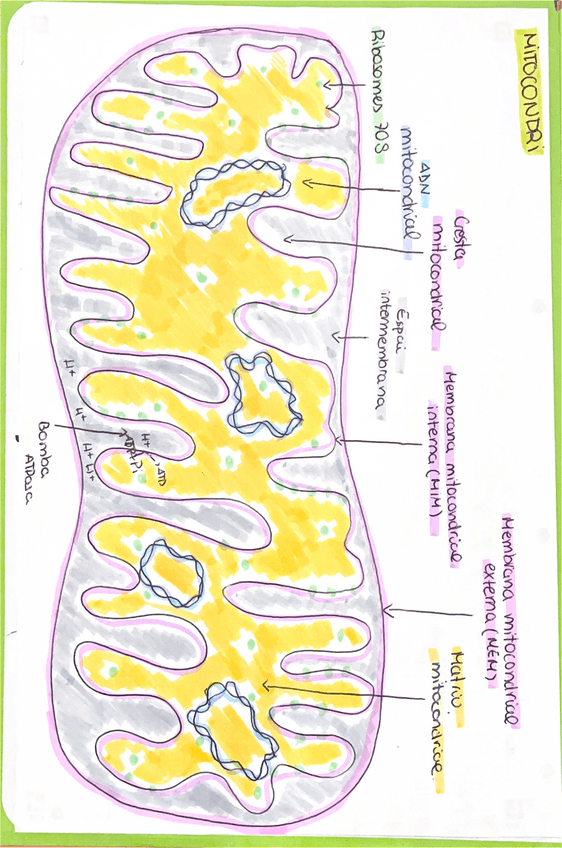 MITOCONDRI
Ribosomes 70S
ADN
mitocondrial
Cresta
mitocondrial
Espai
intermembrana
Membrana mitocondrial
interna (MIM)
Membrana mitocondrial
externa (MEM)
Matriu
mitocondrial
H+
H+
H+ H+
H+
Bomba